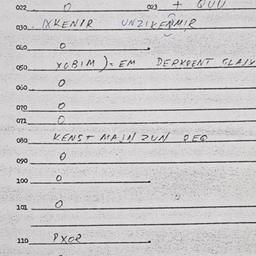 022 0 023 + QUU
030. IXKENIR UNZIKENMIR
040 0
050 XOBIM)=EM DERKPENT GLAIV
060 0
070 0
071 0
080 KENST MAJN ZUN PEQ
090 0
100 0
101 0
110 PXOR